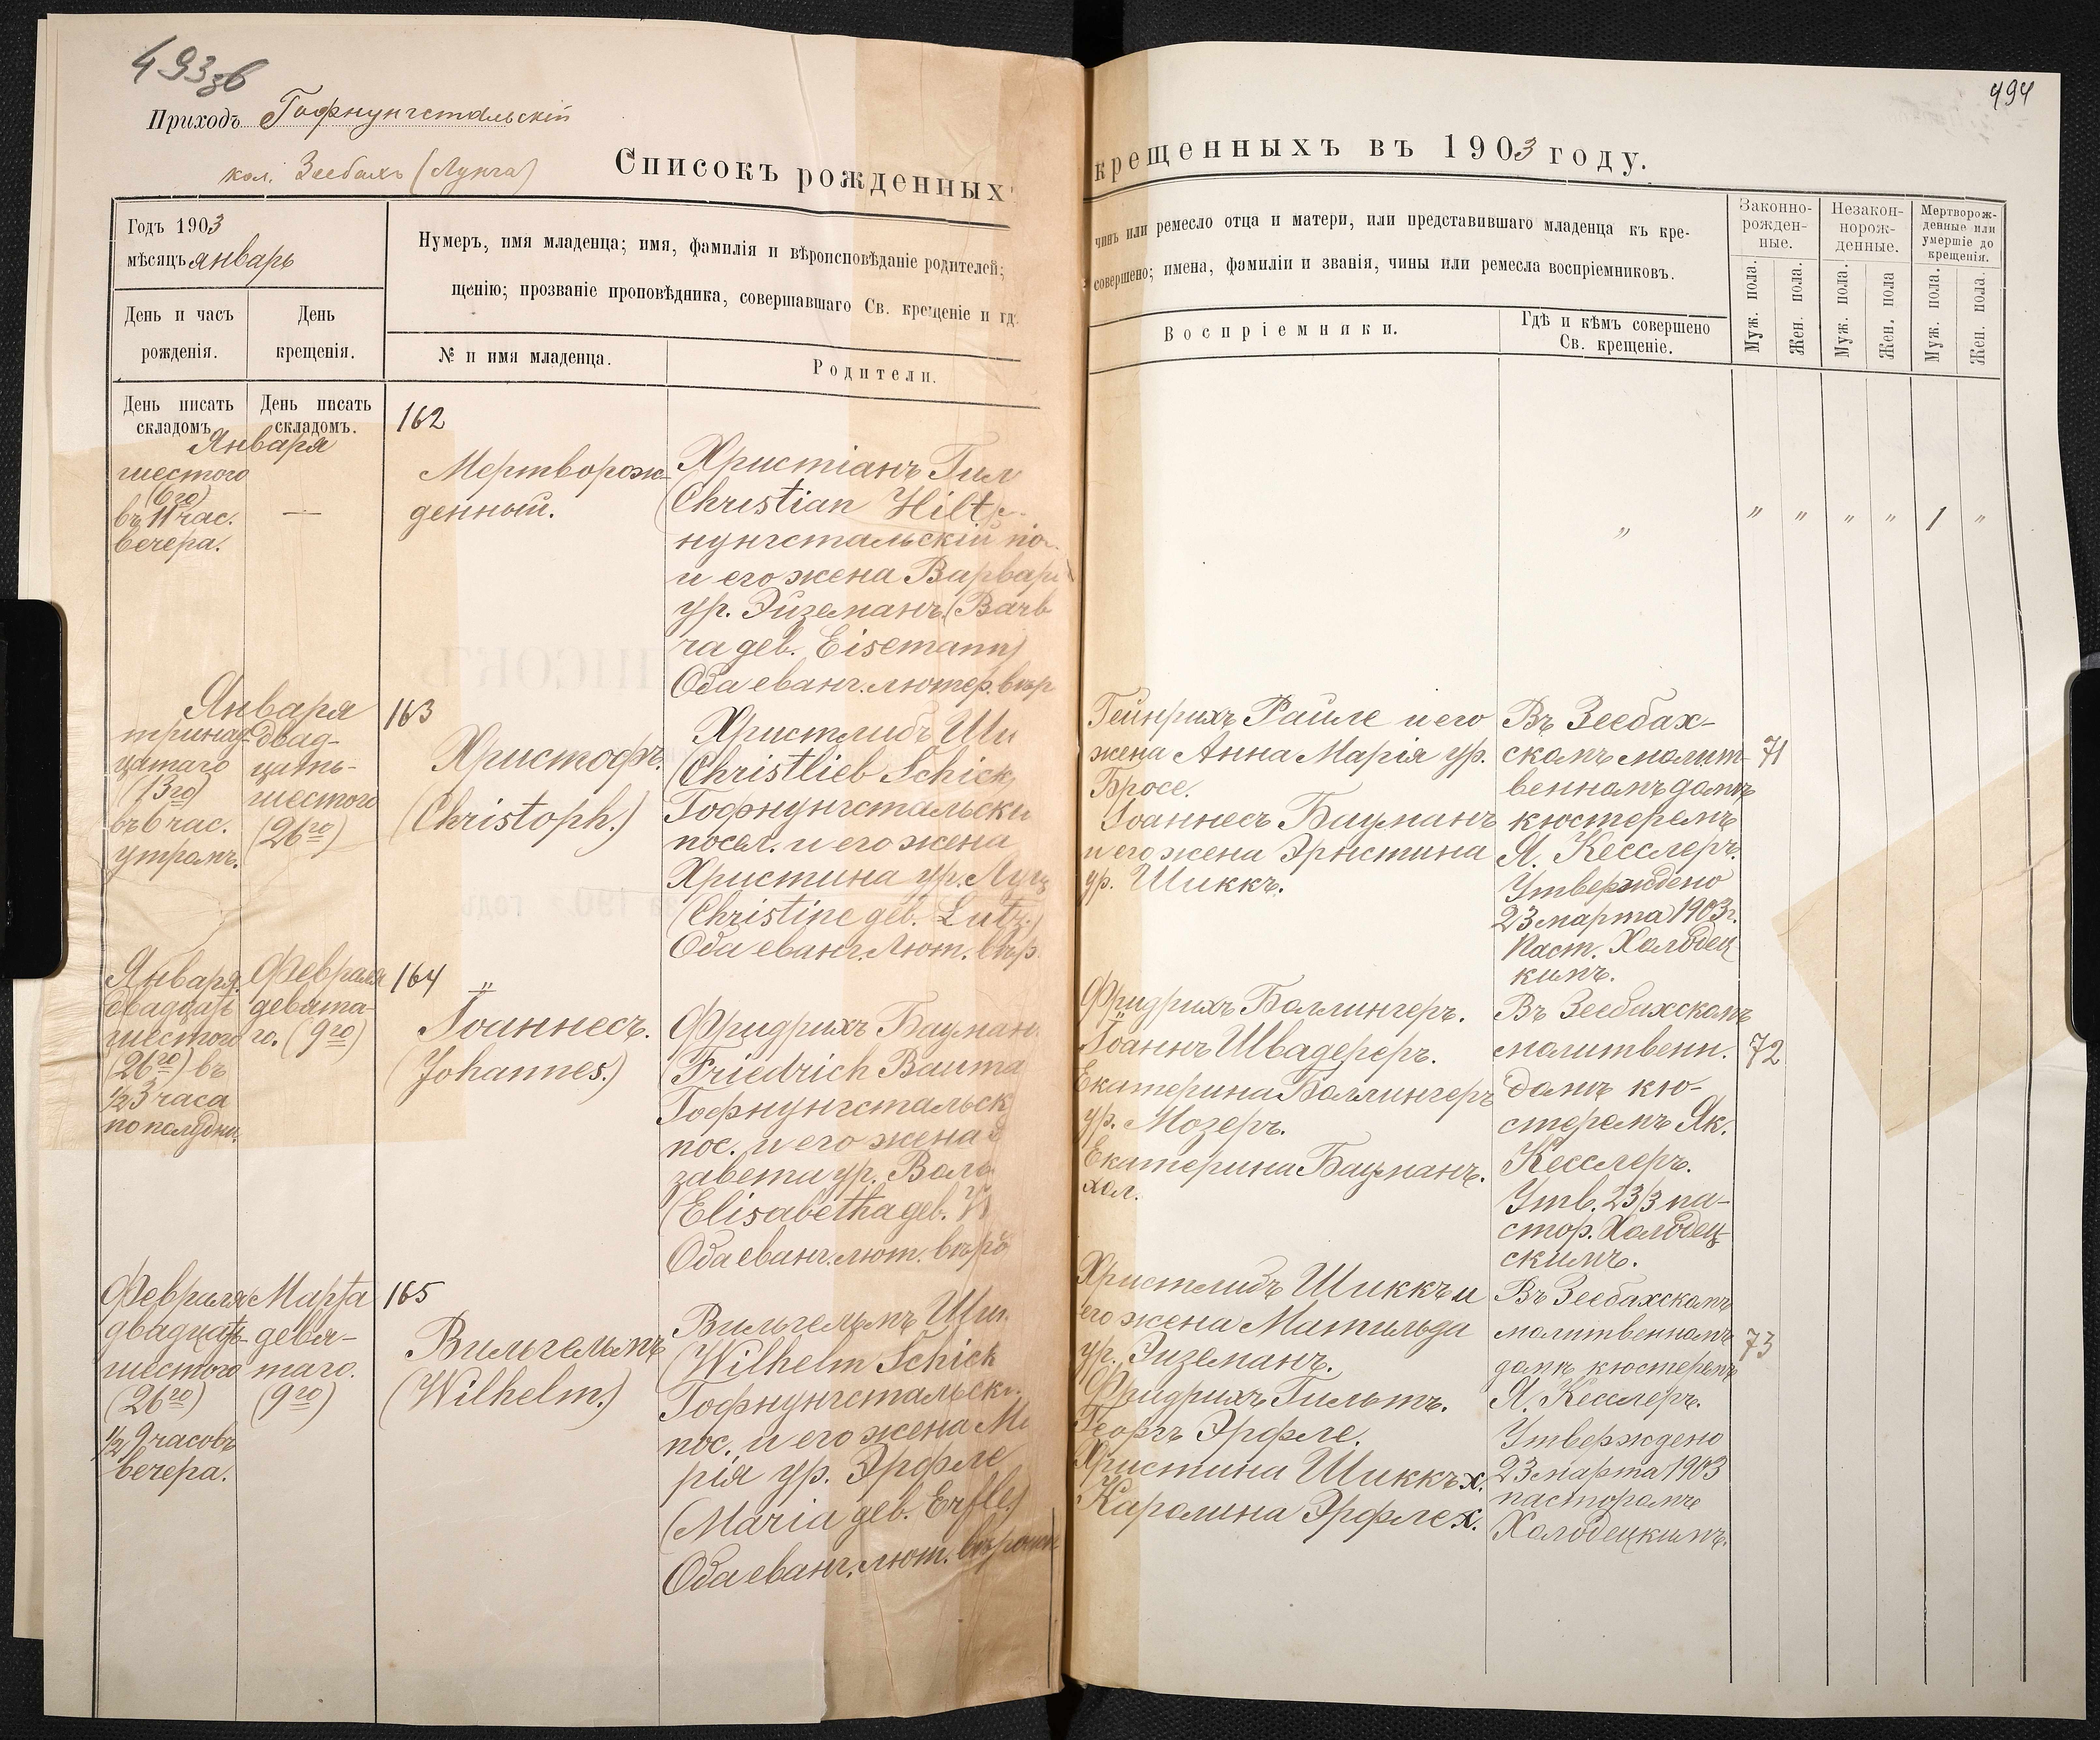 493 зв
494
Приходъ Гофнунгстальскій
кол. Зеебахъ (Лунга)
Списокъ рожденныхъ
крещенныхъ въ 1903 году.
Годъ 1903
мѣсяцъ январь
День и часъ рожденія.
День крещенія.
Нумеръ, имя младенца; имя, фамилія и вѣроисповѣданіе родителей;
щенію; прозваніе проповѣдника, совершавшаго Св. крещеніе и гд
№ и имя младенца.
Родители.
чинъ или ремесло отца и матери, или представившаго младенца къ кре-
совершено; имена, фамиліи и званія, чины или ремесла воспріемниковъ.
Воспріемники.
Гдѣ и кѣмъ совершено
Св. крещеніе.
Законно-
рожден-
ные.
Незакон-
норож-
денные.
Мертворож-
денные или
умершіе до
крещенія.
Муж. пола.
Жен. пола.
Муж. пола.
Жен. пола
Муж. пола.
Жен. пола.
День писать
складомъ
День писать
складомъ.
Января
шестого
(6го)
въ 11 час.
вечера.
—
162
Мертворож-
денный.
Христіанъ Гил
(Christian Hilt
нунгстальскій по
и его жена Варвар
ур. Эйземанъ (Barb
ra geb. Eisemann)
Оба еванг. лютер. вѣр
„
" " " " 1 "
Января
тринад-
цатаго
(13го)
въ 6 час.
утромъ.
двад-
цать-
шестого
(26го)
163
Христофъ.
(Christoph.)
Христлибъ Ши
(Christlieb Schick,
Гофнунгстальски
посел. и его жена
Христина ур. Луц
(Christine geb. Lutz.)
Оба еванг. Лют. вѣр.
Гейнрихъ Райле и его
жена Анна Марія ур.
Бросе.
Іоаннесъ Бауманъ
и его жена Эрнстина
ур. Шиккъ.
Въ Зеебах-
скомъ молит-
венномъ домѣ
кюстеремъ
Я. Кесслеръ.
Утверждено
23 марта 1903 г.
Паст. Холодец
кимъ.
71
Января
двадцать
шестого
(26го) въ
½ 3 часа
по полудни.
Февраля
девята-
го. (9го)
164
Іоаннесъ.
(Johannes.)
Фридрихъ Бауман
(Friedrich Bauma
Гофнунгстальск
пос. и его жена
завета ур. Вала
(Elisabetha geb. W
Оба еванг. лют. вѣро
Фридрихъ Боллингеръ.
Іоаннъ Швадереръ.
Екатерина Боллингеръ
ур. Мозеръ.
Екатерина Бауманъ.
хол.
Въ Зеебахскомъ
молитвенн.
домѣ кю-
стеремъ Як.
Кесслеръ.
Утв. 23/3 па-
стор. Холодец
скимъ.
72
Февраля
двадцать-
шестого
(26го)
½ 9 часовъ
вечера.
Марта
девя-
таго.
(9го)
165
Вильгельмъ
(Wilhelm.)
Вильгельмъ Шик
(Wilhelm Schick
Гофнунгстальск
пос. и его жена Ма
рія ур. Эрфле
(Maria geb. Erfle)
Оба еванг. лют. вѣроисп
Христлибъ Шиккъ и
его жена Матильда
ур. Эйземанъ.
Фридрихъ Гильтъ.
Георгъ Эрфле.
Христина Шиккъ х.
Каролина Эрфле х.
Въ Зеебахскомъ
молитвенномъ
домѣ кюстеремъ
Я. Кесслеръ.
Утверждено
23 марта 1903
пасторомъ
Холодецкимъ.
73